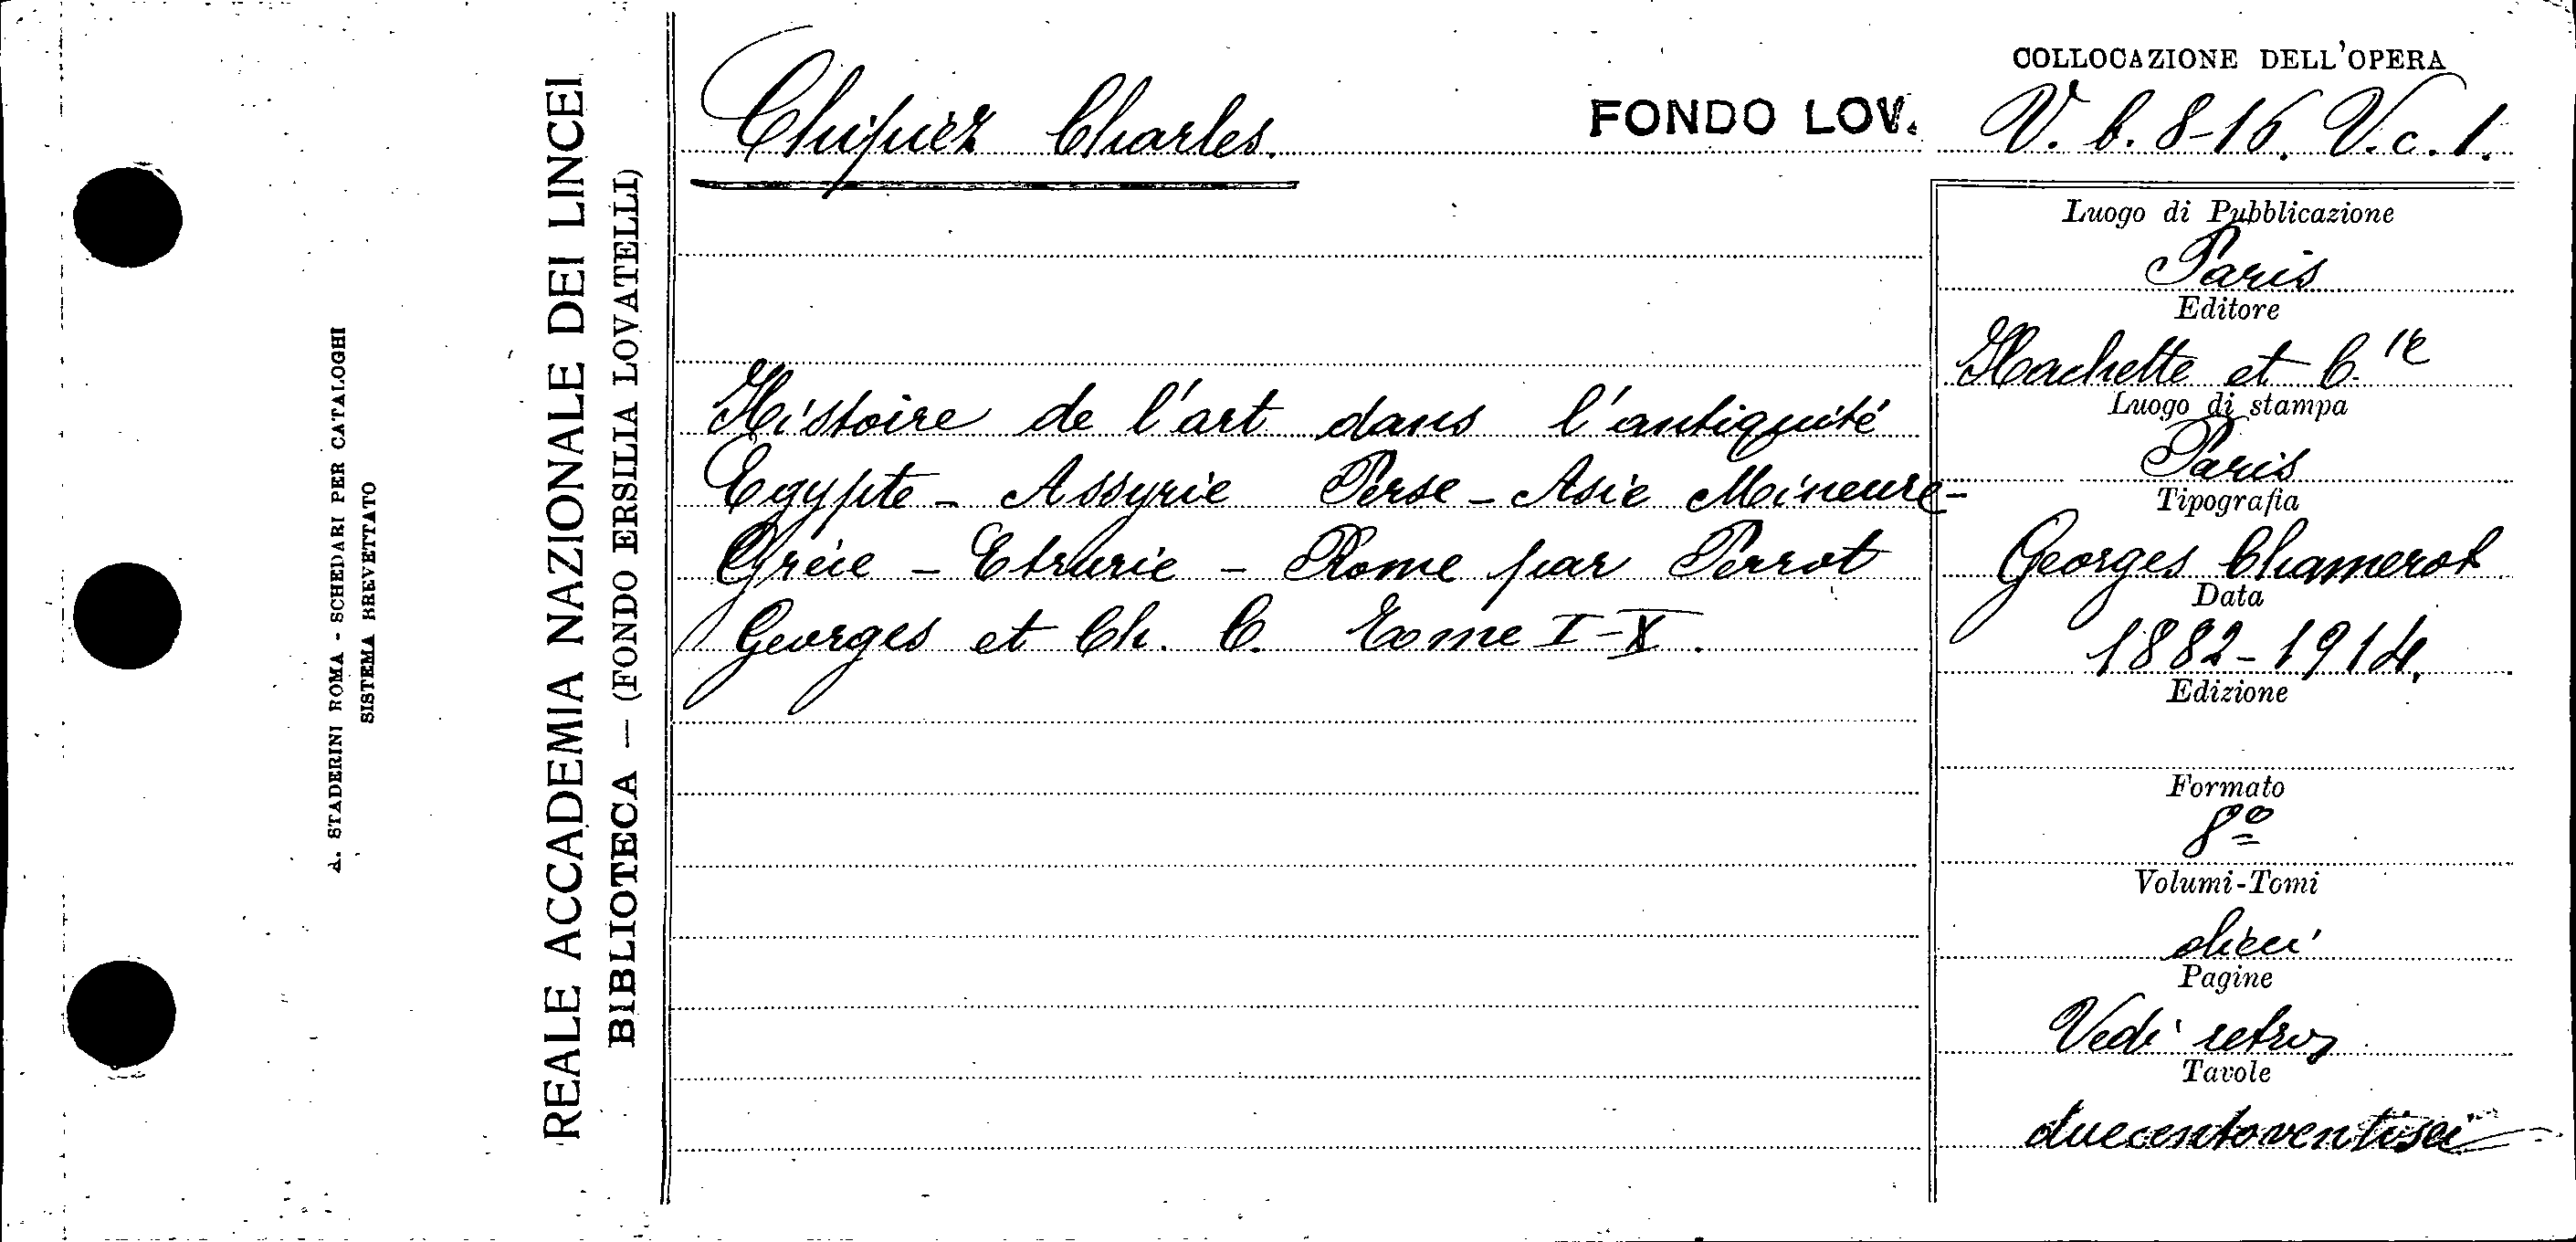 A. STADERINI ROMA - SCHEDARI PER CATALOGHI
SISTEMA BREVETTATO
REALE ACCADEMIA NAZIONALE DEI LINCEI
BIBLIOTECA — (FONDO ERSILIA LOVATELLI)
Chipiez Charles.
FONDO LOV.
COLLOCAZIONE DELL'OPERA
V. b. 8-16. V. c. 1.
Histoire de l'art dans l'antiquité
Egypte - Assyrie Perse - Asie Mineure -
Grèce - Etrurie - Rome par Perrot
Georges et Ch. C. Tome I-X.
Luogo di Pubblicazione
Paris
Editore
Hachette et C.ie
Luogo di stampa
Paris
Tipografia
Georges Chamerot
Data
1882-1914
Edizione
Formato
8º
Volumi-Tomi
dieci
Pagine
Vedi retro
Tavole
duecentoventisei